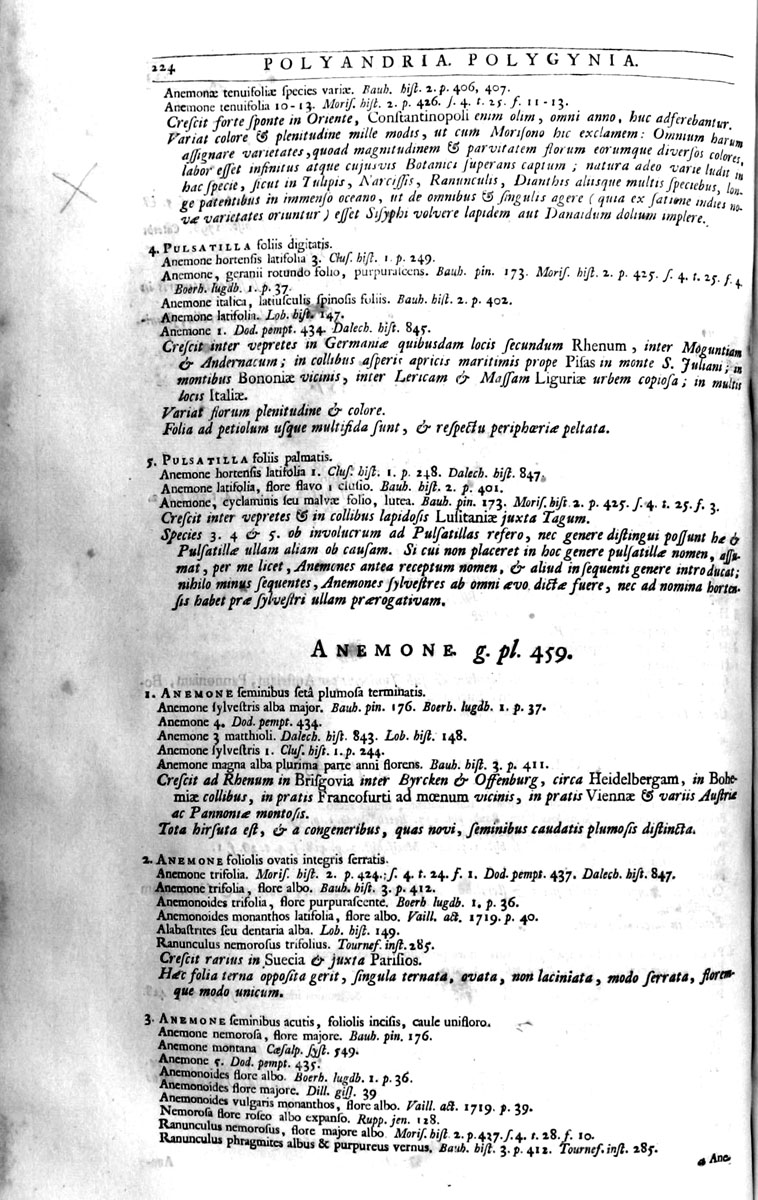 224
POLYANDRIA. POLYGYNIA.
Anemonæ tenuifoliæ ſpecies variæ. Bauh. hiſt. 2. p. 406, 407.
Anemone tenuifolia 10-13. Moriſ. hiſt. 2. p. 426. ſ. 4. t. 25. f. 11-13.
Creſcit forte ſponte in Oriente, Conſtantinopoli enim olim, omni anno, huc adferebantur.
Variat colore & plenitudine mille modis, ut cum Moriſono hic exclamem: Omnium harum
aſſignare varietates, quoad magnitudinem & parvitatem florum eorumque diverſos colores,
labor eſſet infinitus atque cujuſvis Botanici ſuperans captum; natura adeo varie ludit in
hac ſpecie, ſicut in Tulipis, Narciſſis, Ranunculis, Dianthis aliisque multis ſpeciebus, lon-
ge patentibus in immenſo oceano, ut de omnibus & ſingulis agere (quia ex ſatione indies no-
væ varietates oriuntur) eſſet Siſyphi volvere lapidem aut Danaidum dolium implere.
4. PULSATILLA foliis digitatis.
Anemone hortenſis latifolia 3. Cluſ. hiſt. 1. p. 249.
Anemone, geranii rotundo folio, purpuraſcens. Bauh. pin. 173. Moriſ. hiſt. 2. p. 425. ſ. 4. t. 25. f. 4.
Boerh. lugdb. 1. p. 37.
Anemone italica, latiuſculis ſpinoſis foliis. Bauh. hiſt. 2. p. 402.
Anemone latifolia. Lob. hiſt. 147.
Anemone 1. Dod. pempt. 434. Dalech. hiſt. 845.
Creſcit inter vepretes in Germaniæ quibusdam locis ſecundum Rhenum, inter Moguntiam
& Andernacum; in collibus aſperis apricis maritimis prope Piſas in monte S. Juliani; in
montibus Bononiæ vicinis, inter Lericam & Maſſam Liguriæ urbem copioſa; in multis
locis Italiæ.
Variat florum plenitudine & colore.
Folia ad petiolum usque multifida ſunt, & reſpectu periphœriæ peltata.
5. PULSATILLA foliis palmatis.
Anemone hortenſis latifolia 1. Cluſ. hiſt. 1. p. 248. Dalech. hiſt. 847.
Anemone latifolia, flore flavo 1 cluſio. Bauh. hiſt. 2. p. 401.
Anemone, cyclaminis ſeu malvæ folio, lutea. Bauh. pin. 173. Moriſ. hiſt 2. p. 425. ſ. 4. t. 25. f. 3.
Creſcit inter vepretes & in collibus lapidoſis Luſitaniæ juxta Tagum.
Species 3. 4 & 5. ob involucrum ad Pulſatillas refero, nec genere diſtingui poſſunt hæ &
Pulſatillæ ullam aliam ob cauſam. Si cui non placeret in hoc genere pulſatillæ nomen, aſſu-
mat, per me licet, Anemones antea receptum nomen, & aliud in ſequenti genere introducat;
nihilo minus ſequentes, Anemones ſylveſtres ab omni ævo dictæ fuere, nec ad nomina horten-
ſis habet præ ſylveſtri ullam prærogativam.
ANEMONE. g. pl. 459.
1. ANEMONE ſeminibus ſetâ plumoſa terminatis.
Anemone ſylveſtris alba major. Bauh. pin. 176. Boerh. lugdb. 1. p. 37.
Anemone 4. Dod. pempt. 434.
Anemone 3 matthioli. Dalech. hiſt. 843. Lob. hiſt. 148.
Anemone ſylveſtris 1. Cluſ. hiſt. 1. p. 244.
Anemone magna alba plurima parte anni florens. Bauh. hiſt. 3. p. 411.
Creſcit ad Rhenum in Briſgovia inter Byrcken & Offenburg, circa Heidelbergam, in Bohe-
miæ collibus, in pratis Francofurti ad mœnum vicinis, in pratis Viennæ & variis Auſtriæ
ac Pannoniæ montoſis.
Tota hirſuta eſt, & a congeneribus, quas novi, ſeminibus caudatis plumoſis diſtincta.
2. ANEMONE foliolis ovatis integris ſerratis.
Anemone trifolia. Moriſ. hiſt. 2. p. 424. ſ. 4. t. 24. f. 1. Dod. pempt. 437. Dalech. hiſt. 847.
Anemone trifolia, flore albo. Bauh. hiſt. 3. p. 412.
Anemonoides trifolia, flore purpuraſcente. Boerh lugdb. 1. p. 36.
Anemonoides monanthos latifolia, flore albo. Vaill. act. 1719. p. 40.
Alabaſtrites ſeu dentaria alba. Lob. hiſt. 149.
Ranunculus nemoroſus trifolius. Tournef. inſt. 285.
Creſcit rarius in Suecia & juxta Pariſios.
Hæc folia terna oppoſita gerit, ſingula ternata, ovata, non laciniata, modo ſerrata, florem-
que modo unicum.
3. ANEMONE ſeminibus acutis, foliolis inciſis, caule unifloro.
Anemone nemoroſa, flore majore. Bauh. pin. 176.
Anemone montana Cæſalp. ſyſt. 549.
Anemone 5. Dod. pempt. 435.
Anemonoides flore albo. Boerh. lugdb. 1. p. 36.
Anemonoides flore majore. Dill. giſſ. 39
Anemonoides vulgaris monanthos, flore albo. Vaill. act. 1719. p. 39.
Nemoroſa flore roſeo albo expanſo. Rupp. jen. 128.
Ranunculus nemoroſus, flore majore albo Moriſ. hiſt 2. p. 437. ſ. 4. t. 28. f. 10.
Ranunculus phragmites albus & purpureus vernus. Bauh. hiſt. 3. p. 412. Tournef. inſt. 285.
Ane-